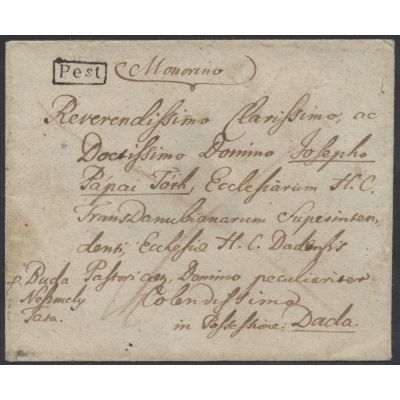 Pest Monorino
Reverendissimo Clarissimo, ac
Doctissimo Domino Josepho
Papai Tóth, Ecclesiarum H. C.
TransDanubianarum Superinten-
denti, Ecclesiæ H. C. Dadensis
p. Buda Pastori &c, Domino peculiariter
Neszmely Colendissimo
Tata. in Possessione: Dada.